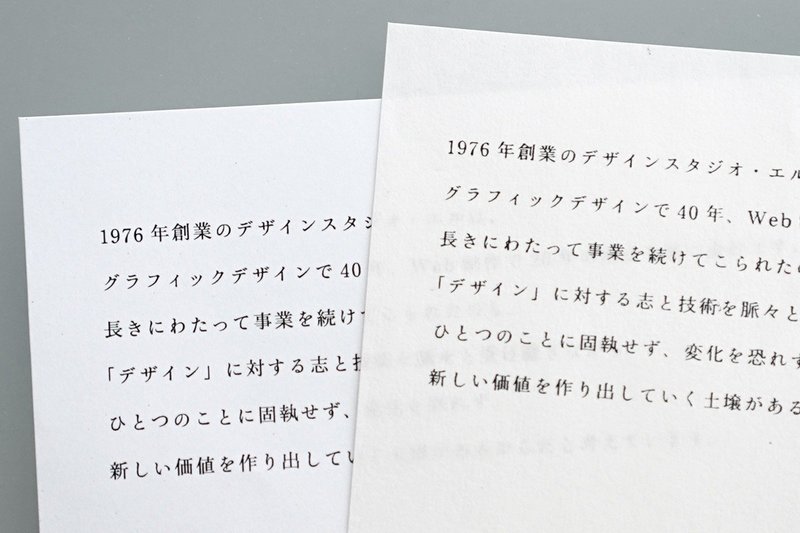 1976年創業のデザインスタジ
グラフィックデザインで40
長きにわたって事業を続け
「デザイン」に対する志と
ひとつのことに固執せず、
新しい価値を作り出してい
1976年創業のデザインスタジオ・エル
グラフィックデザインで40年、Web
長きにわたって事業を続けてこられた
「デザイン」に対する志と技術を脈々と
ひとつのことに固執せず、変化を恐れず
新しい価値を作り出していく土壌がある